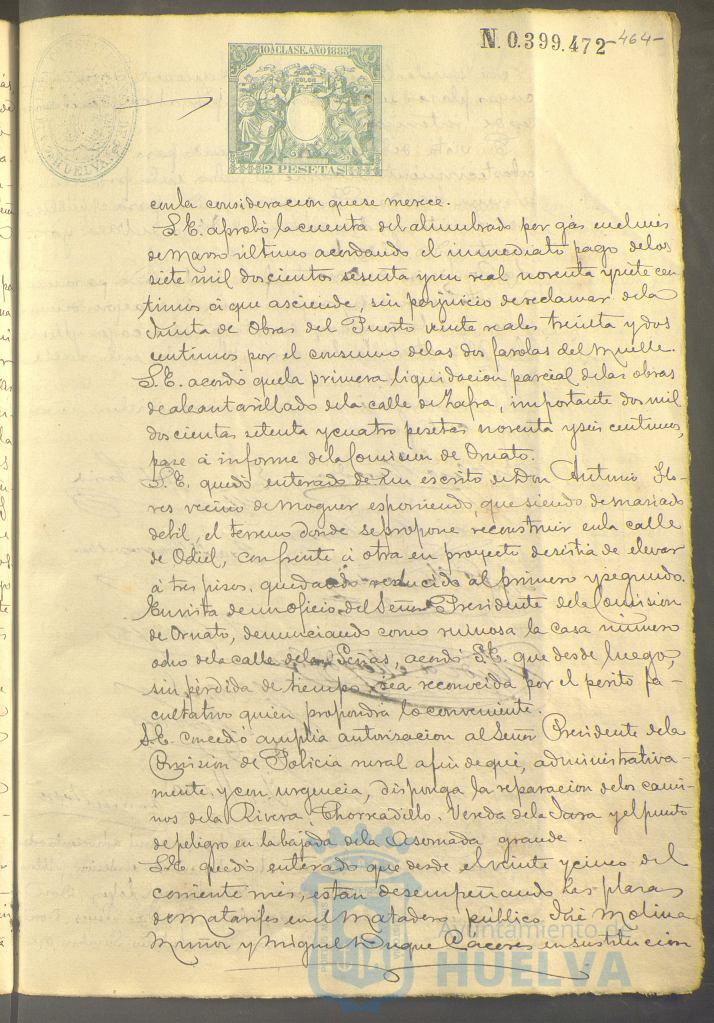 N. 0.399.472 -464-
10ª CLASE. AÑO 1883
COLON
2 PESETAS
HUELVA
con la consideracion que se merece.
S.E. aprobó la cuenta del alumbrado por gas en el mes
de Marzo último acordando el inmediato pago de los
siete mil doscientos sesenta y un real noventa y siete cen
timos á que asciende, sin perjuicio de reclamar de la
Junta de Obras del Puerto veinte reales treinta y dos
centimos por el consumo de las dos farolas del Muelle.
S.E. acordó que la primera liquidacion parcial de las obras
de alcantarillado de la calle de Zafra, importante dos mil
doscientas setenta y cuatro pesetas noventa y seis centimos,
pase á informe de la Comision de Ornato.
S.E. quedó enterado de un escrito de Don Antonio Flo-
res vecino de Moguer esponiendo, que siendo demasiado
debil, el terreno donde se propone reconstruir en la calle
de Odiel, con frente á otra en proyecto desistia de elevar
á tres pisos, quedando reducido al primero y segundo.
En vista de un oficio del Señor Presidente de la Comision
de Ornato, denunciando como ruinosa la casa número
ocho de la calle de las Señas, acordó S.E. que desde luego,
sin pérdida de tiempo sea reconocida por el perito fa-
cultativo quien propondrá lo conveniente.
S.E. concedió amplia autorizacion al Señor Presidente de la
Comision de Policia rural a fin de que, administrativa-
mente, y con urgencia, disponga la reparacion de los cami-
nos de la Rivera, Chorreadillo, Vereda de la Jara y el punto
de peligro en la bajada de la Asomada grande.
S.E. quedó enterado que desde el veinte y cinco del
corriente mes, estan desempeñando las plazas
de Matarifes en el Matadero público José Molina
Muñoz y Miguel Duque Caceres en sustitucion
Ayuntamiento de
HUELVA